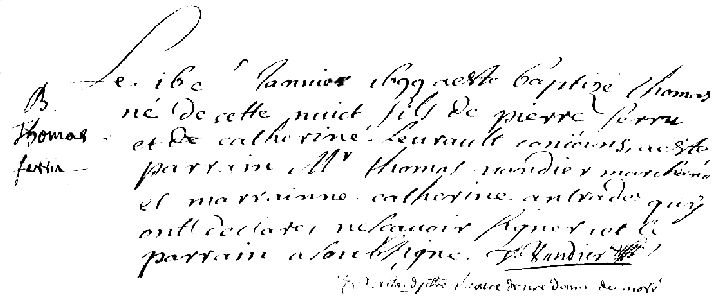 B
Thomas
ferru
Le 16e Janvier 1699 a esté baptizé thomas
né de cette nuict fils de pierre ferru
et de catherine leurault conioins, a esté
parrain Mr thomas nandier marchand
et marrainne catherine antrade quy
ont declaré ne scavoir signer et le
parrain a soubsigné. T. Nandier